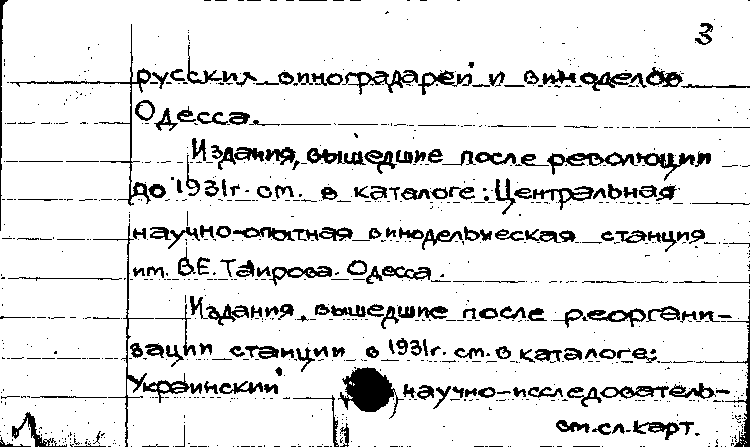 3
русских виноградарей и виноделов
Одесса.
Издания, вышедшие после революции
до 1931г. см. в каталоге: Центральная
научно-опытная винодельческая станция
им. В.Е. Таирова. Одесса.
Издания, вышедшие после реоргани-
зации станции в 1931г. см. в каталоге:
Украинский научно-исследователь-
см.сл.карт.